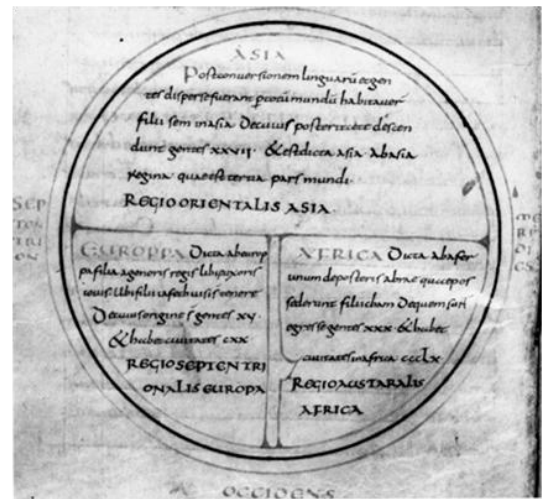 ASIA
Post conversionem linguarū et gen
tes disperse fuerant p totū mundū habitaver
filii sem in asia De cuius posteritate descen
dunt gentes xxvii · & est dicta asia Ab asia
regina quae est tertia pars mundi·
REGIO ORIENTALIS ASIA·
SEP
TEN
TRI
ON
MERE
DI
ES
EUROPPA Dicta ab europ
pa filia agenoris regis libi
iovis· Ubi filii iafeth visi s tenere
De cuius origine s gentes xv·
& habet civitates cxx
REGIO SEPTENTRI
ONALIS EUROPA
AFRICA Dicta ab afer
unum de posteris abrae qui
sederunt filii cham De quem s
egresse gentes xxx & habet
civitates in africa ccclx
REGIO AUSTARALIS
AFRICA
OCCIDENS